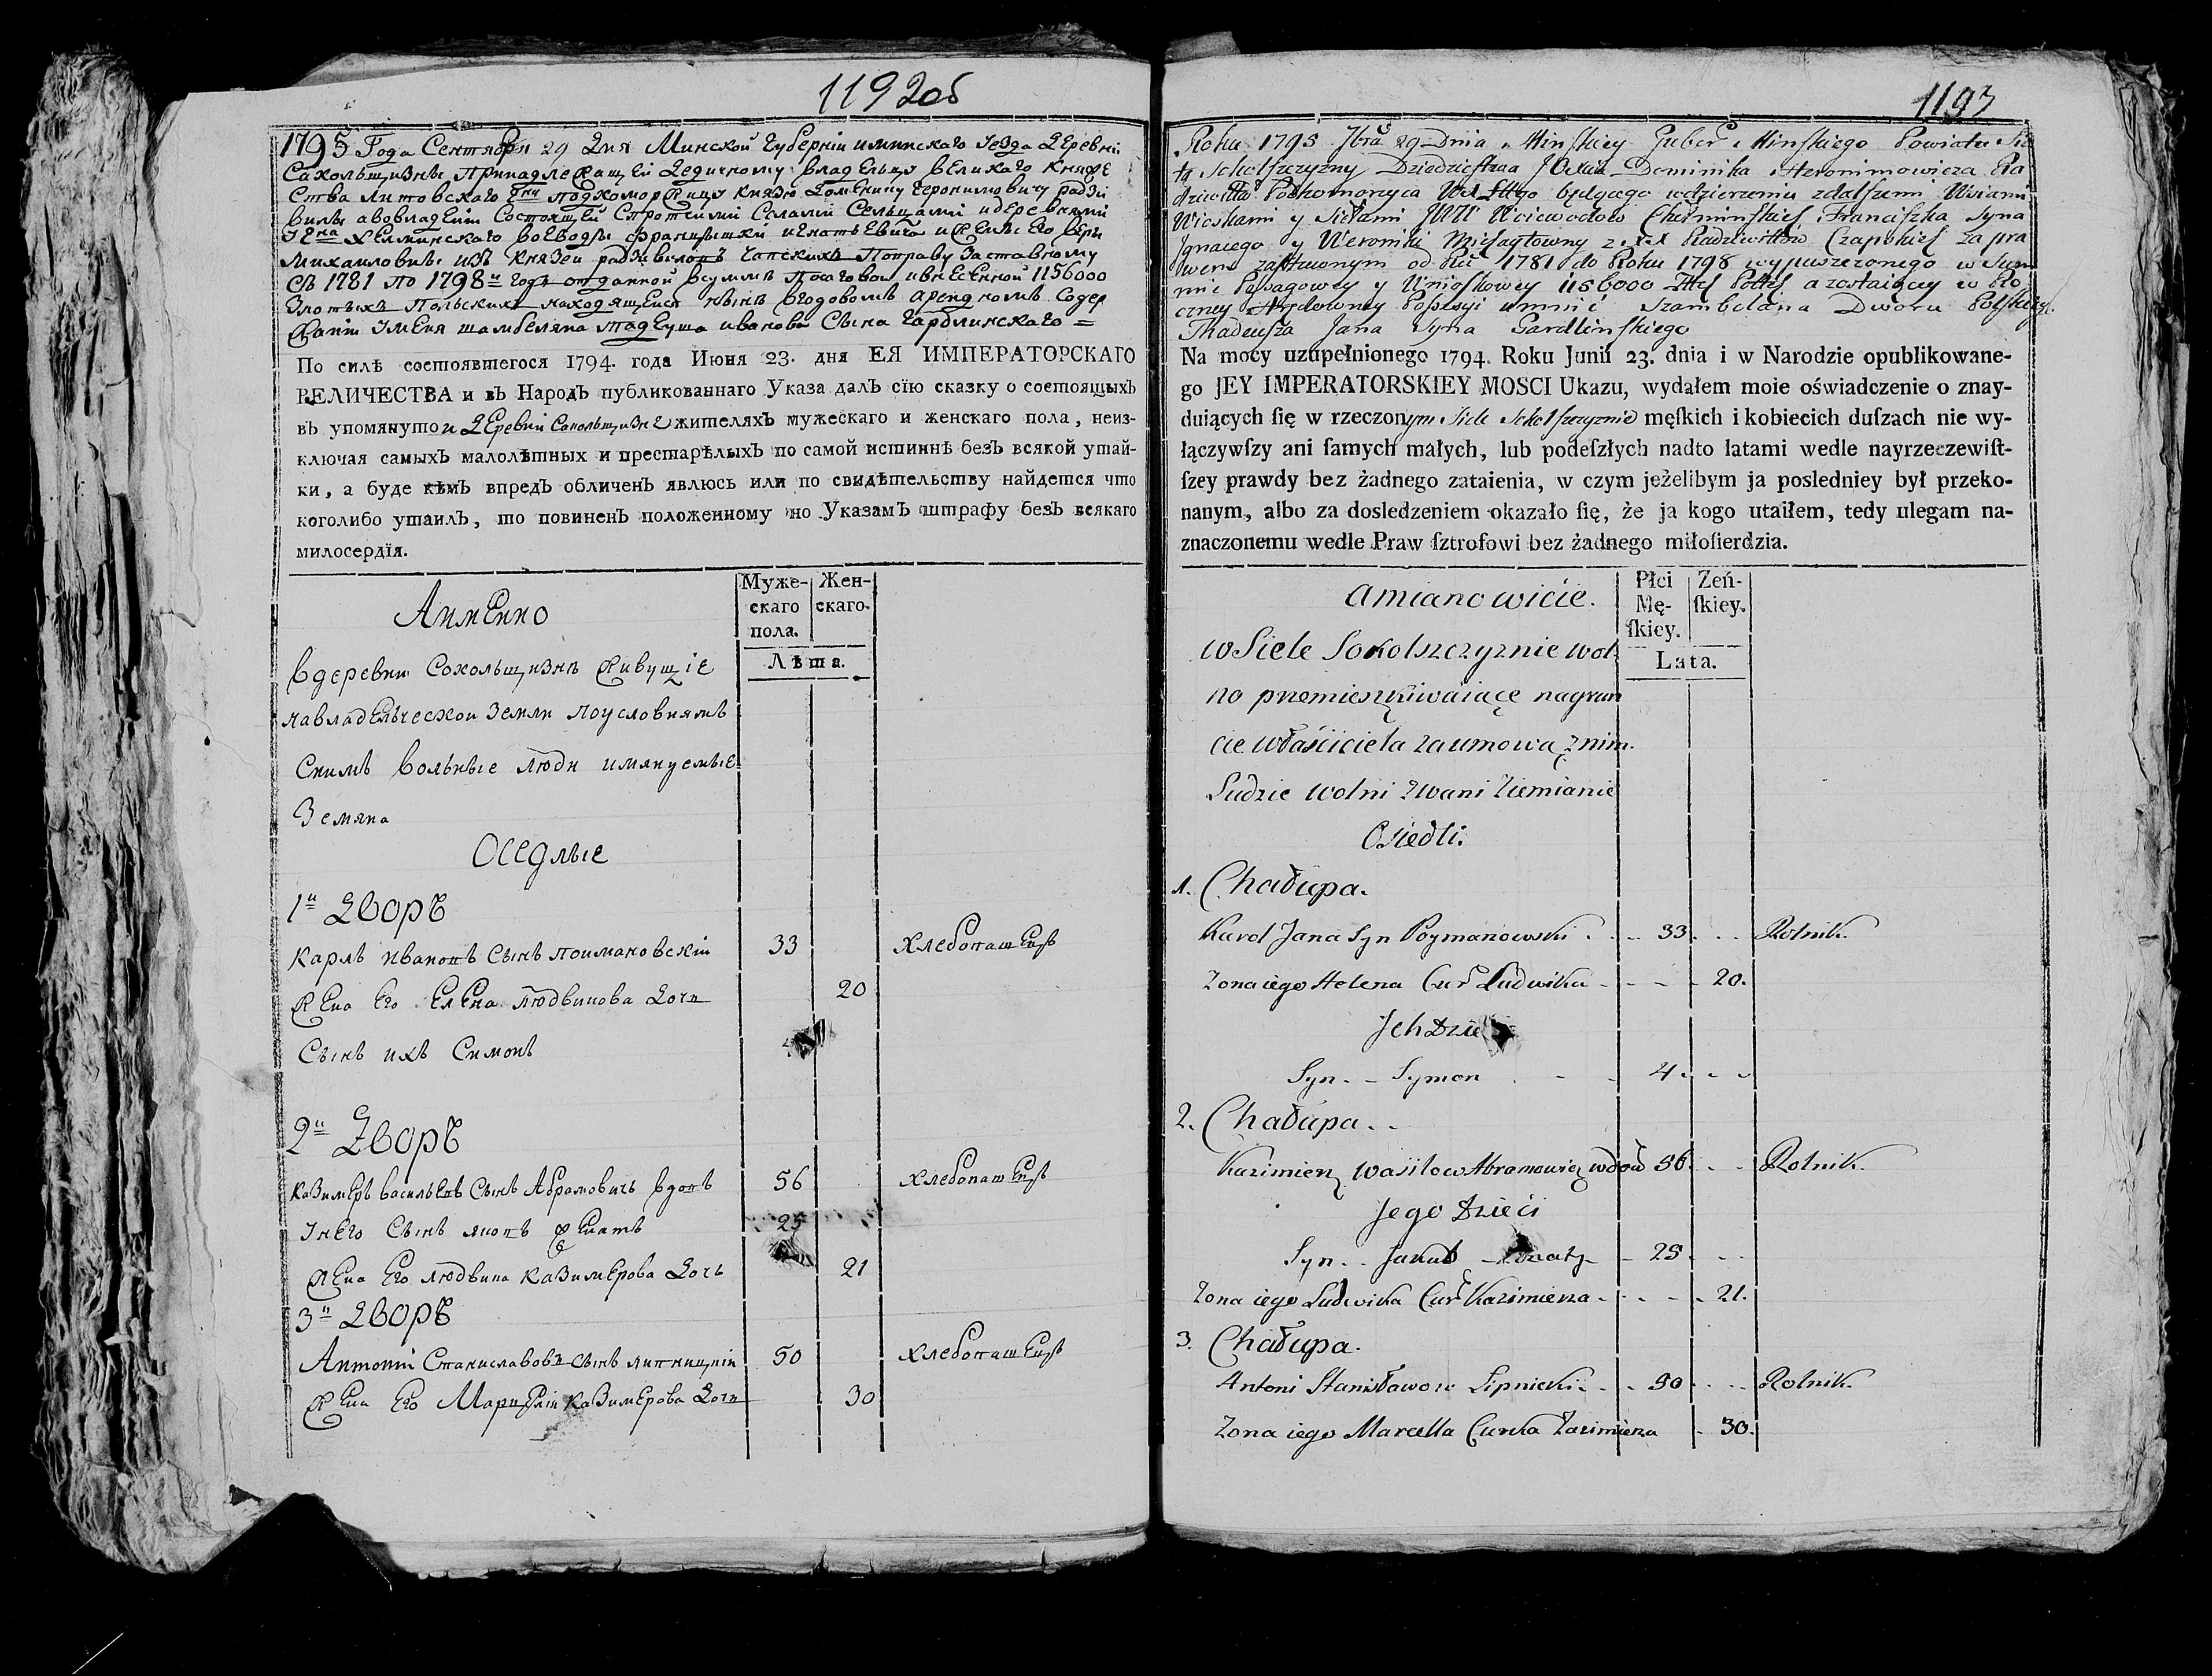 1192об
1795 Года Сентября 29 Дня Минской Губерніи и минскаго уезда Деревни
Сакольщизны Принадлежащей Дедичному владельцу великаго Княже
Ства литовскаго подкоморжицу Князю Доменику Иеронимовичу радзи
вилу а во владеніи Состоящей С протчими Селами Сельцами и деревнями
Хелминскаго воеводы францышки игнатьевича и жены Его веры
михаиловны изъ Князей радзивиловъ чапскихъ По праву Заставному
съ 1781 по 1798й годъ отданной в сумме посаговой и внесенной 1156000
Злотыхъ Польскихъ находящейся ныне в годовомъ арендномъ Содер
жаніи Імена шамбеляна тадеуша иванова Сына гардлинскаго =
По силѣ состоявшегося 1794. года Июня 23. дня ЕЯ ИМПЕРАТОРСКАГО
ВЕЛИЧЕСТВА и въ Народъ публикованнаго Указа далъ сїю сказку о состоящыхъ
въ упомянутой Деревни Сакольщизне жителяхъ мужескаго и женскаго пола, неиз-
ключая самыхъ малолѣтных и престарѣлыхъ по самой истиннѣ безъ всякой утай-
ки, а буде кѣмъ впредъ обличенъ явлюсь или по свидѣтельству найдется что
коголибо утаилъ, то повиненъ положенному по Указамъ штрафу безъ всякаго
милосердїя.
Аименно
Муже-
скаго
пола.
Жен-
скаго.
Лѣта.
в деревни Сокольщизне Живущіе
на владельческой Земли по условиямъ
С нимъ вольные люди имянуемые
Земяна
Оседлые
1й Дворъ
Карлъ Ивановъ Сынъ поимановскій 33 Хлебопашецъ
Жена Его Елена людвикова Дочь 20
Сынъ ихъ Симонъ
2й Дворъ
Казимеръ васильевъ Сынъ Абрамовичъ вдовъ 56 Хлебопашецъ
У него Сынъ якопъ женатъ 25
Жена Его людвика казимерова Дочь 21
3й Дворъ
Антоній Станиславовъ Сынъ липницкій 50 Хлебопашецъ
Жена Его казимерова Дочь 30
1193
Roku 1795 7bra 29 Dnia Minskiey Guber Minskiego Powiatu Sie
ła Sokolszczyzny Dziedzictwa Dominika Heronimowicza Ra
dziwiłła Podkomorzyca będącego w dzierzeniu z dalszemi Wsiami
Wioskami y Siełami Woiewodow Chełminskich Franciszka Syna
Ignacego y Weroniki Michałowny z Radziwiłłow Czapskich za pra
wem zastawnym od Ru 1781 do Roku 1798 wypuszczonego w Sum
mie Posagowey y Wnioskowey 1156000 a zostaiącey w Ro
czney Arędowney Possesyi Szambelana Dworu Polskiego
Thadeusza Jana Syna Gardlinskiego
Na mocy uzupełnionego 1794. Roku Junii 23. dnia i w Narodzie opublikowane-
go JEY IMPERATORSKIEY MOSCI Ukazu, wydałem moie oświadczenie o znay-
duiących ſię w rzeczonym Siele Sokolszczyznie męſkich i kobiecich duſzach nie wy-
łączywſzy ani ſamych małych, lub podeſzłych nadto latami wedle nayrzeczewiſt-
ſzey prawdy bez żadnego zataienia, w czym jeżelibym ja posledniey był przeko-
nanym, albo za dosledzeniem okazało ſię, że ja kogo utaiłem, tedy ulegam na-
znaczonemu wedle Praw ſztrofowi bez żadnego miłoſierdzia.
Amianowicie.
Płci
Mę-
ſkiey.
Żeń-
ſkiey.
Lata.
w Siele Sokolszczyznie wol-
no przemieszkiwaiące na grun
cie właściciela za umową z nim.
Ludzie wolni zwani Ziemianie
Osiedli.
1. Chałupa.
Karol Jana Syn Poymanowski 33. Rolnik.
Zona iego Helena Cur Ludwika 20.
Jch Dzieci
Syn Symon 4.
2. Chałupa.
Kazimierz Wasilow Abramowicz wdow 56. Rolnik.
Jego Dzieci
Syn Jakub żonaty 25
Zona iego Ludwika Cur Kazimierza 21.
3. Chałupa.
Antoni Stanisławow Lipnicki 50 Rolnik.
Zona iego Marcella Curka Kazimierza 30.